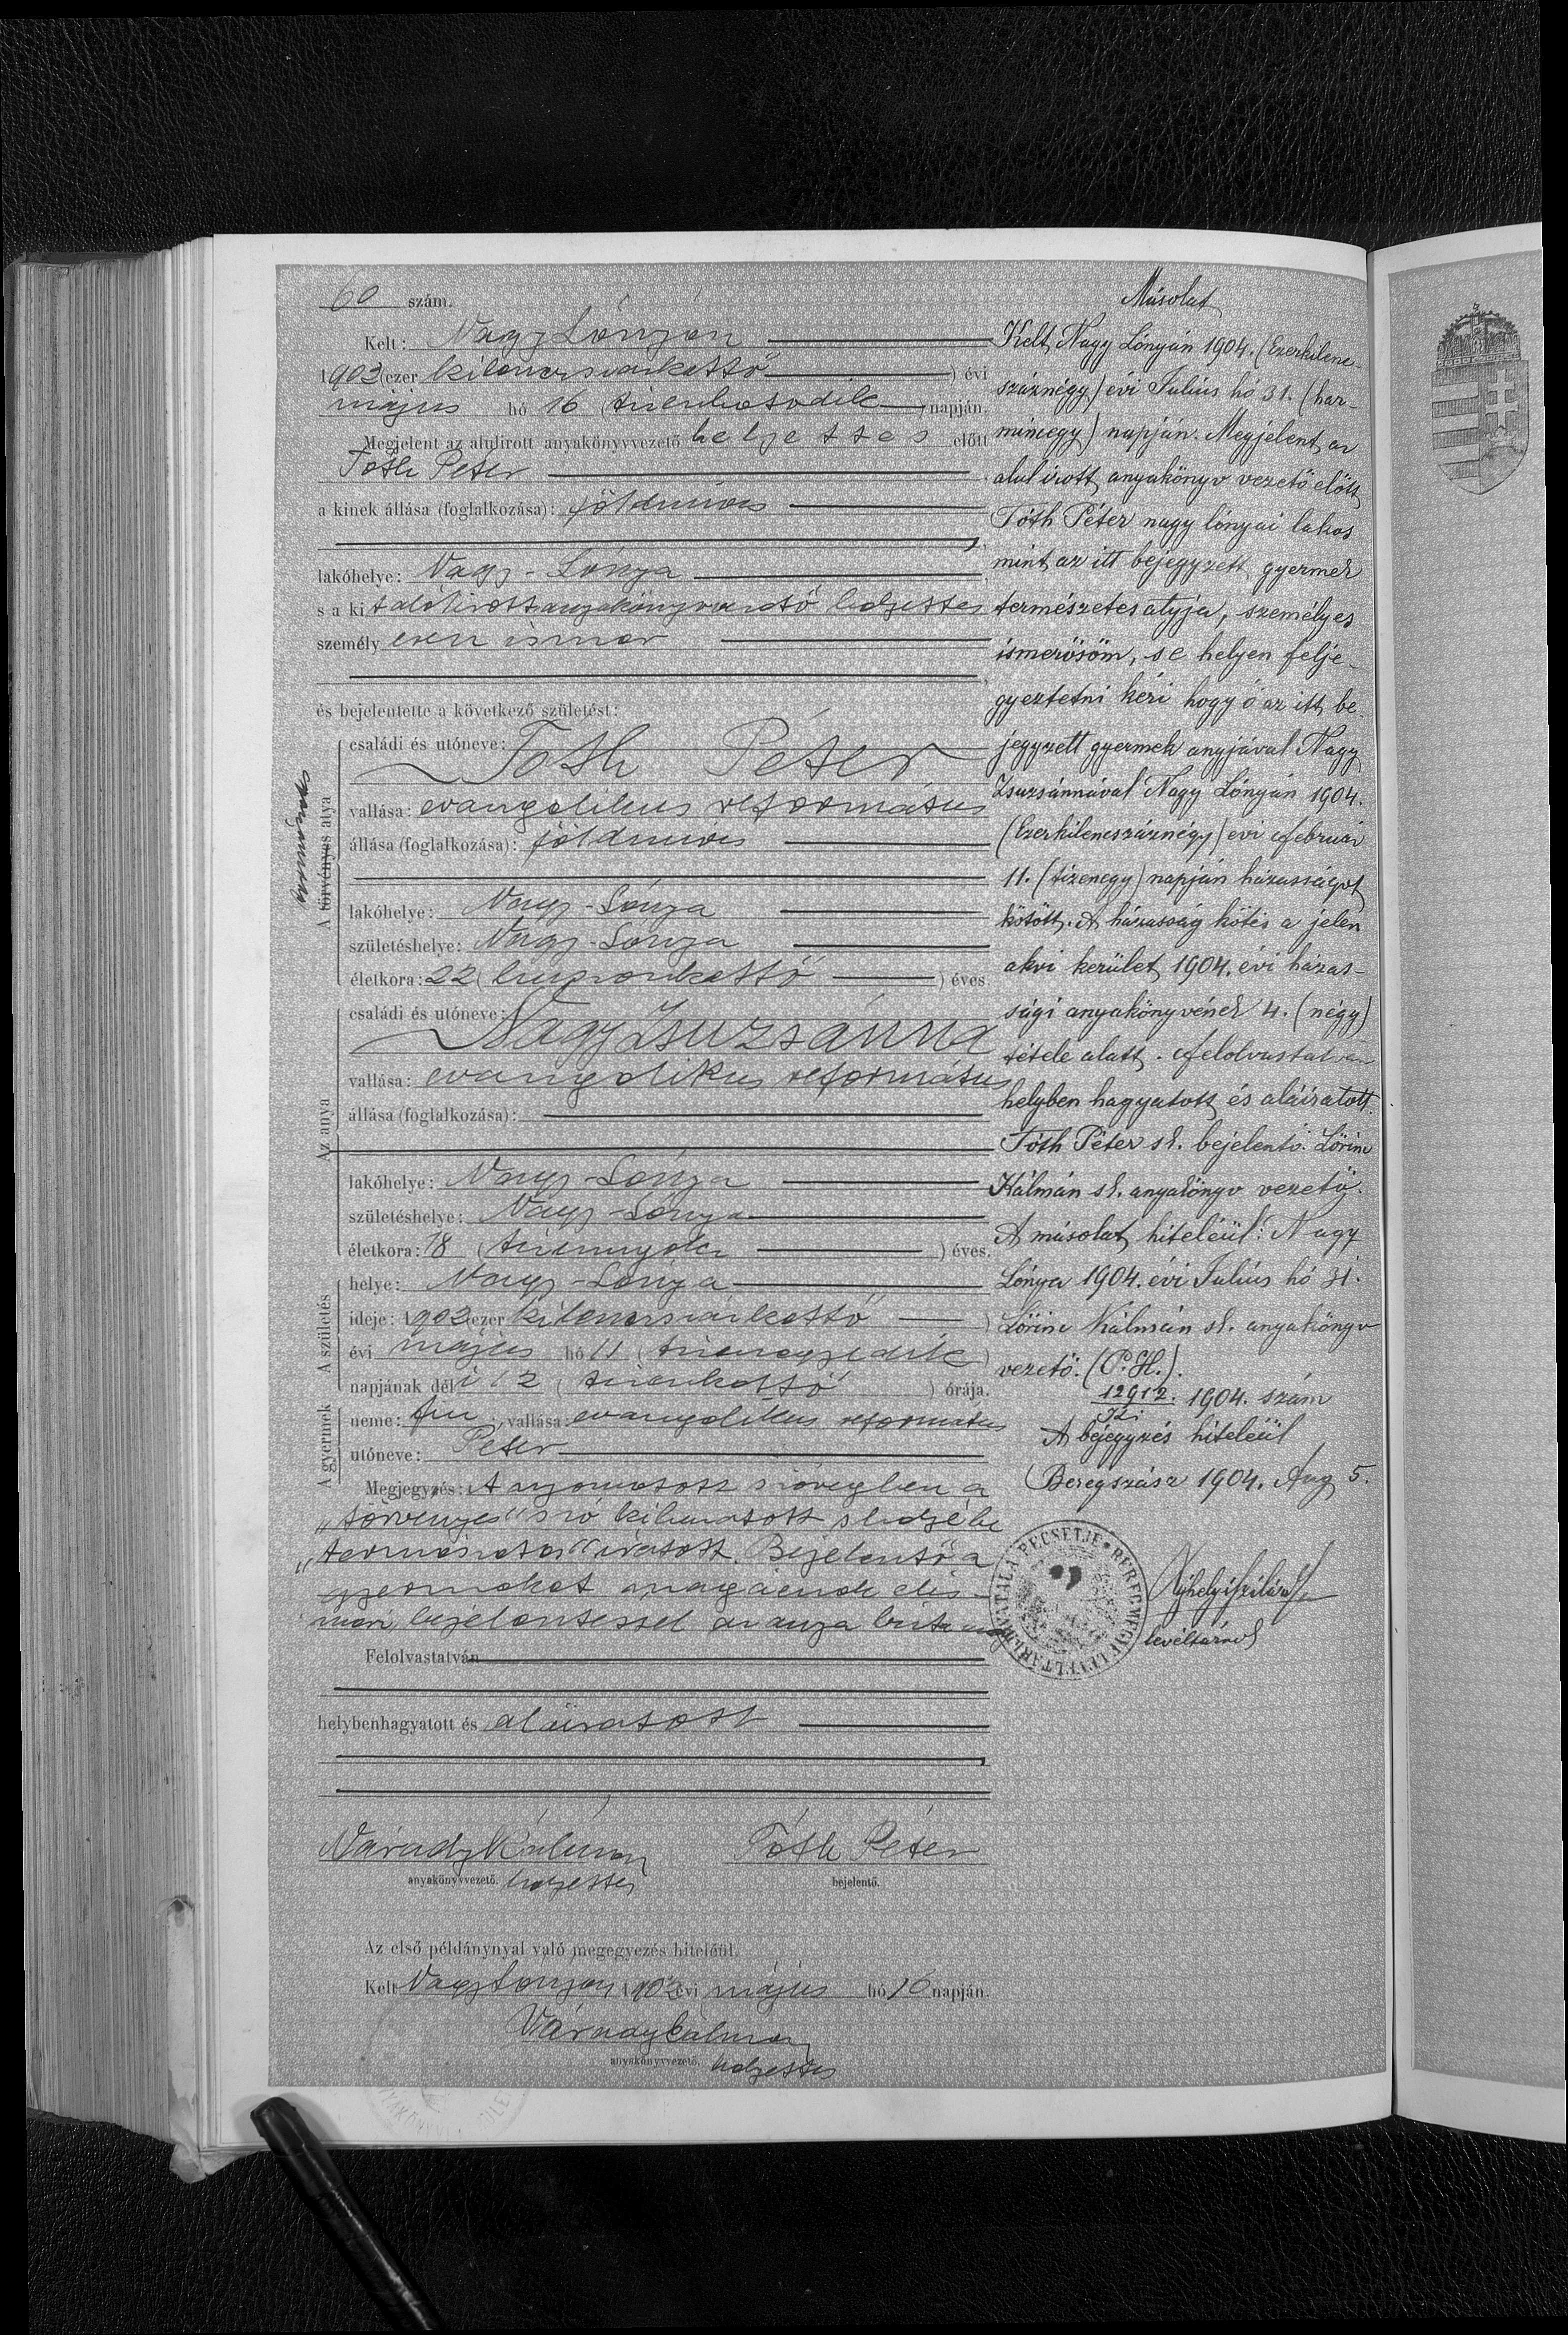 60 szám.
Kelt: Nagy Lónyán
1902 (ezer kilenczszázkettő) évi
május hó 16 (tizenhatodik) napján.
Megjelent az alulirott anyakönyvvezető helyettes előtt
Tóth Péter
a kinek állása (foglalkozása): földmives
lakóhelye: Nagy-Lónya
s a kit alólirott anyakönyvvezető helyettes
személyesen ismer
és bejelentette a következő születést:
A törvényes atya
természetes
családi és utóneve:
Tóth Péter
vallása: evangelikus református
állása (foglalkozása): földmives
lakóhelye: Nagy-Lónya
születéshelye: Nagy-Lónya
életkora: 22 (huszonkettő) éves.
Az anya
családi és utóneve:
Nagy Zsuzsánna
vallása: evangelikus református
állása (foglalkozása):
lakóhelye: Nagy-Lónya
születéshelye: Nagy-Lónya
életkora: 18 (tizennyolcz) éves.
A születés
helye: Nagy-Lónya
ideje: 1902 (ezer kilenczszázkettő)
évi május hó 11 (tizenegyedik)
napjának déli 12 (tizenkettő) órája.
A gyermek
neme: fiu, vallása: evangelikus református
utóneve: Péter
Megjegyzés: A nyomatott szövegben a
„törvényes" szó kihuzatott s helyébe
„természetes" iratott. Bejelentő a
gyermeket magáénak elis-
meri, bejelentéssel az anya bizta meg
Felolvastatván
helybenhagyatott és aláiratott
Várady Kálmán Tóth Péter
anyakönyvvezető. helyettes bejelentő.
Az első példánynyal való megegyezés hiteléül.
Kelt Nagy Lónyán 1902 évi május hó 16 napján.
Várady Kálmán
anyakönyvvezető. helyettes
Másolat
Kelt, Nagy Lónyan 1904. (Ezerkilenc-
száznégy) évi Július hó 31. (har-
mincegy) napján. Megjelent, az
alulírott, anyakönyv vezető előtt
Tóth Péter nagy lónyai lakos
mint, az itt bejegyzett, gyermek
természetes atyja, személyes
ismerősöm, s e helyen felje-
gyeztetni kéri hogy ő az itt, be-
jegyzett gyermek anyjával Nagy
Zsuzsánnával Nagy Lónyán 1904.
(Ezerkilencszáznégy) évi Február
11. (tizenegy) napján házasságot
kötött. A házasság kötés a jelen
akvi kerület, 1904. évi házas-
sági anyakönyvének 4. (négy)
tétele alatt. Felolvastatván
helyben hagyatott és aláíratott.
Tóth Péter sk. bejelentő. Lőrinc
Kálmán sk. anyakönyv vezető.
A másolat hiteléül: Nagy
Lónya 1904. évi Július hó 31.
Lőrinc Kálmán sk. anyakönyv
vezető. (P.H.).
12912. 1904. szám
A bejegyzés hiteléül
Beregszász 1904. Aug 5.
BEREGMEGYE LEVÉLTÁRI HIVATALA PECSÉTJE
levéltárnok